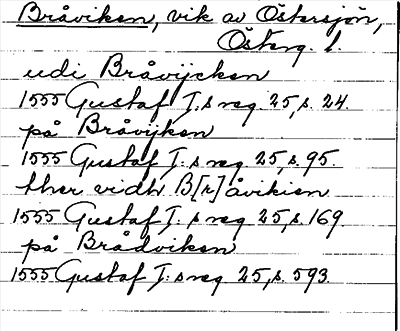 Bråviken, vik av Östersjön,
Österg. l.
udi Bråvijcken
1555 Gustaf I:s reg. 25, s. 24.
på Bråvijken
1555 Gustaf I:s reg. 25, s. 95.
ther vidh B[r]åvikien
1555 Gustaf I:s reg 25, s. 169.
på Brådviken
1555 Gustaf I:s reg 25, s. 593.